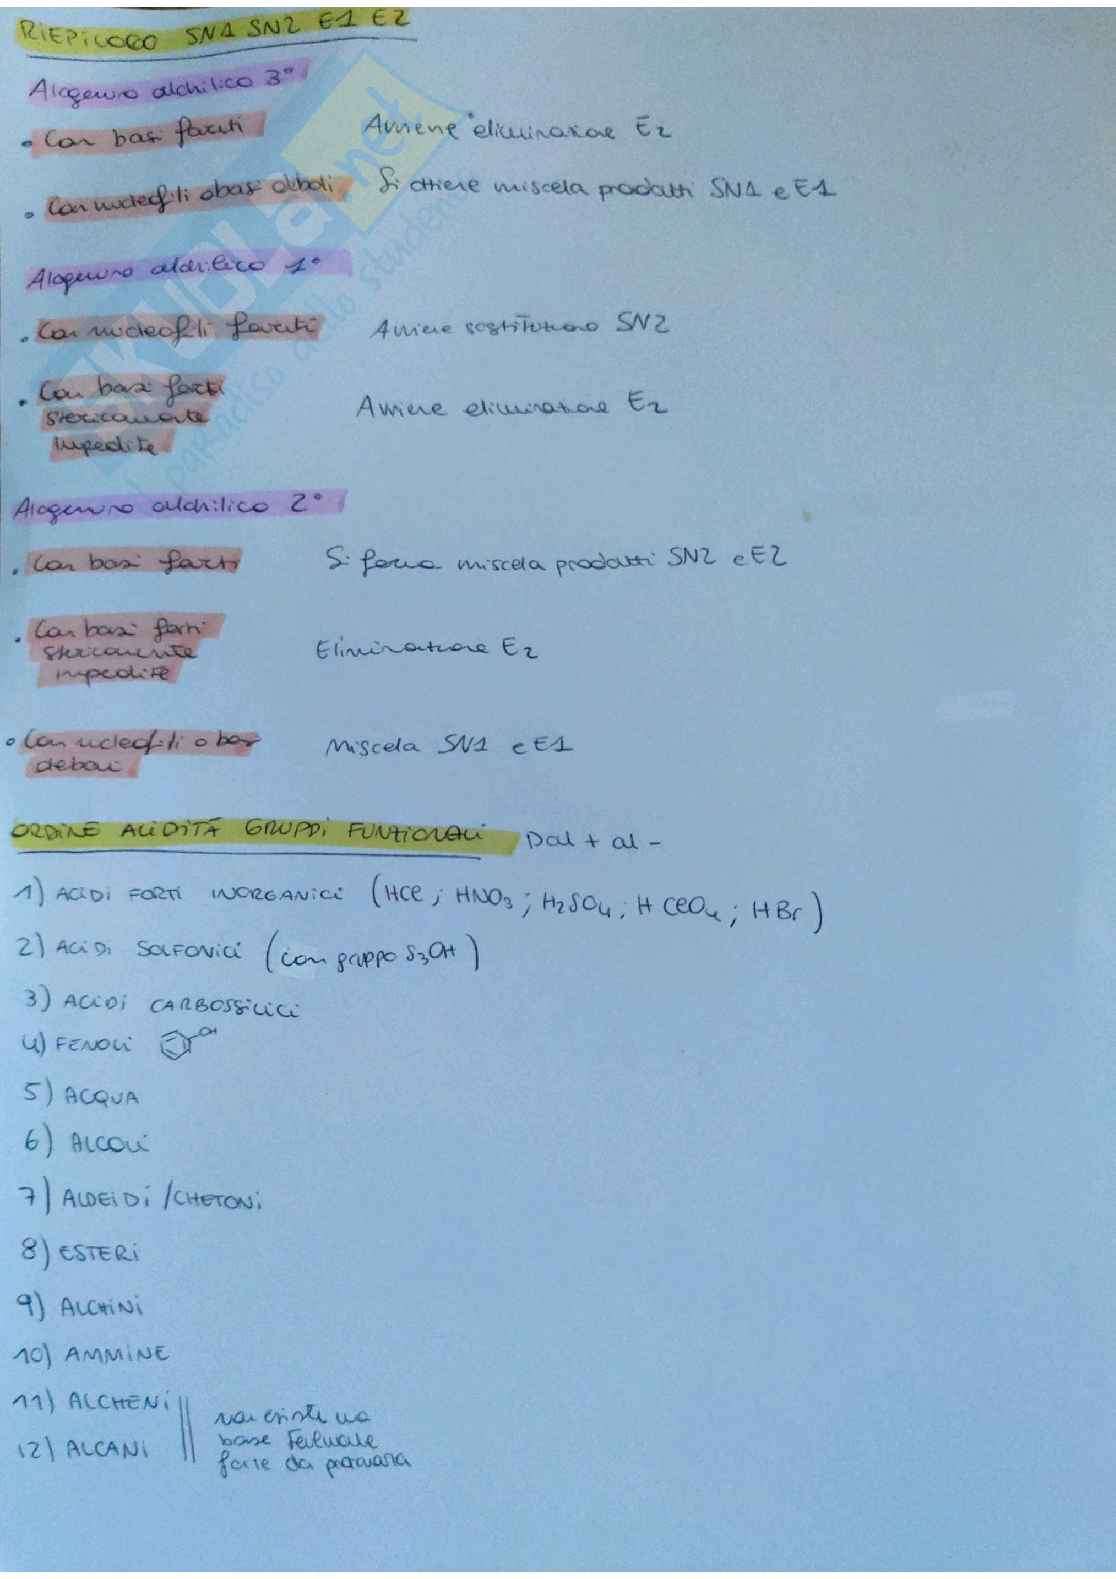 RIEPILOGO SN1 SN2 E1 E2
Alogenuro alchilico 3°
• Con basi forti Avviene eliminazione E2
• Con nucleofili o basi deboli Si ottiene miscela prodotti SN1 e E1
Alogenuro alchilico 1°
• Con nucleofili forti Avviene sostituzione SN2
• Con basi forti
stericamente Avviene eliminazione E2
impedite
Alogenuro alchilico 2°
• Con basi forti Si forma miscela prodotti SN2 e E2
• Con basi forti
stericamente Eliminazione E2
impedite
• Con nucleofili o basi Miscela SN1 e E1
deboli
ORDINE ACIDITÀ GRUPPI FUNZIONALI Dal + al -
1) ACIDI FORTI INORGANICI (HCl ; HNO3 ; H2SO4 ; HClO4 ; HBr)
2) ACIDI SOLFONICI (con gruppo S3OH)
3) ACIDI CARBOSSILICI
4) FENOLI OH
5) ACQUA
6) ALCOLI
7) ALDEIDI / CHETONI
8) ESTERI
9) ALCHINI
10) AMMINE
11) ALCHENI non esiste una
12) ALCANI base talmente
forte da
SKUOLA.net